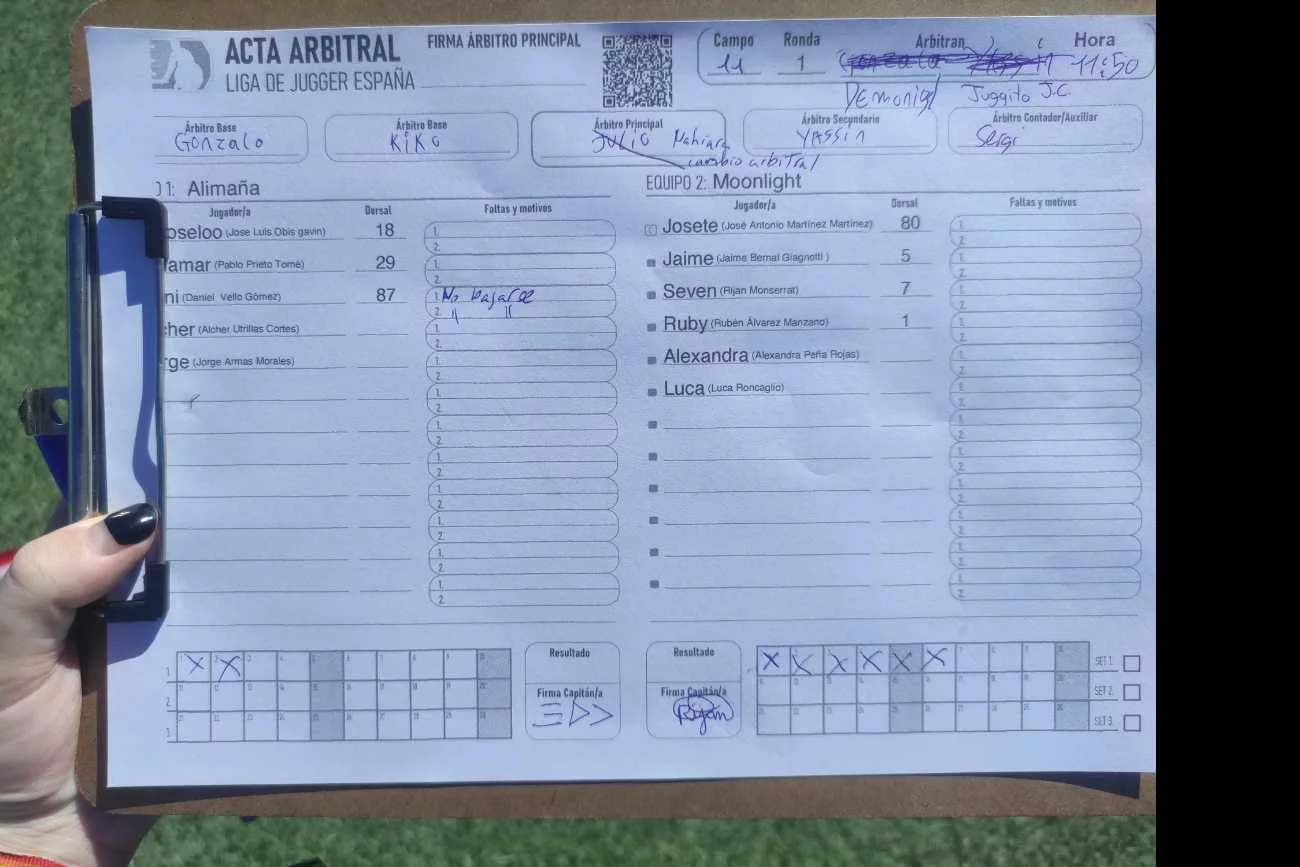 ACTA ARBITRAL
LIGA DE JUGGER ESPAÑA
FIRMA ÁRBITRO PRINCIPAL
Campo 11
Ronda 1
Arbitran
Demonige Juggito J.C.
Hora 11:50
Árbitro Base Gonzalo
Árbitro Base KiKo
Árbitro Principal JULIO
cambio arbitral
Árbitro Secundario YASSIN
Árbitro Contador/Auxiliar Sergi
1: Alimaña
Jugador/a Dorsal Faltas y motivos
oseloo (Jose Luis Obis gavin) 18 1.
2.
amar (Pablo Prieto Tomé) 29 1.
2.
ni (Daniel Vello Gómez) 87 1. No bajarse
2. " "
cher (Alcher Utrillas Cortes) 1.
2.
rge (Jorge Armas Morales) 1.
2.
1.
2.
1.
2.
1.
2.
1.
2.
1.
2.
1.
2.
1.
2.
EQUIPO 2: Moonlight
Jugador/a Dorsal Faltas y motivos
Josete (José Antonio Martínez Martínez) 80 1.
2.
Jaime (Jaime Bernal Giagnotti ) 5 1.
2.
Seven (Rijan Monserrat) 7 1.
2.
Ruby (Rubén Álvarez Manzano) 1 1.
2.
Alexandra (Alexandra Peña Rojas) 1.
2.
Luca (Luca Roncaglio) 1.
2.
1.
2.
1.
2.
1.
2.
1.
2.
1.
2.
1.
2.
X X
Resultado
Firma Capitán/a
Resultado
Firma Capitán/a
Rijan
X X X X X X
SET 1
SET 2
SET 3